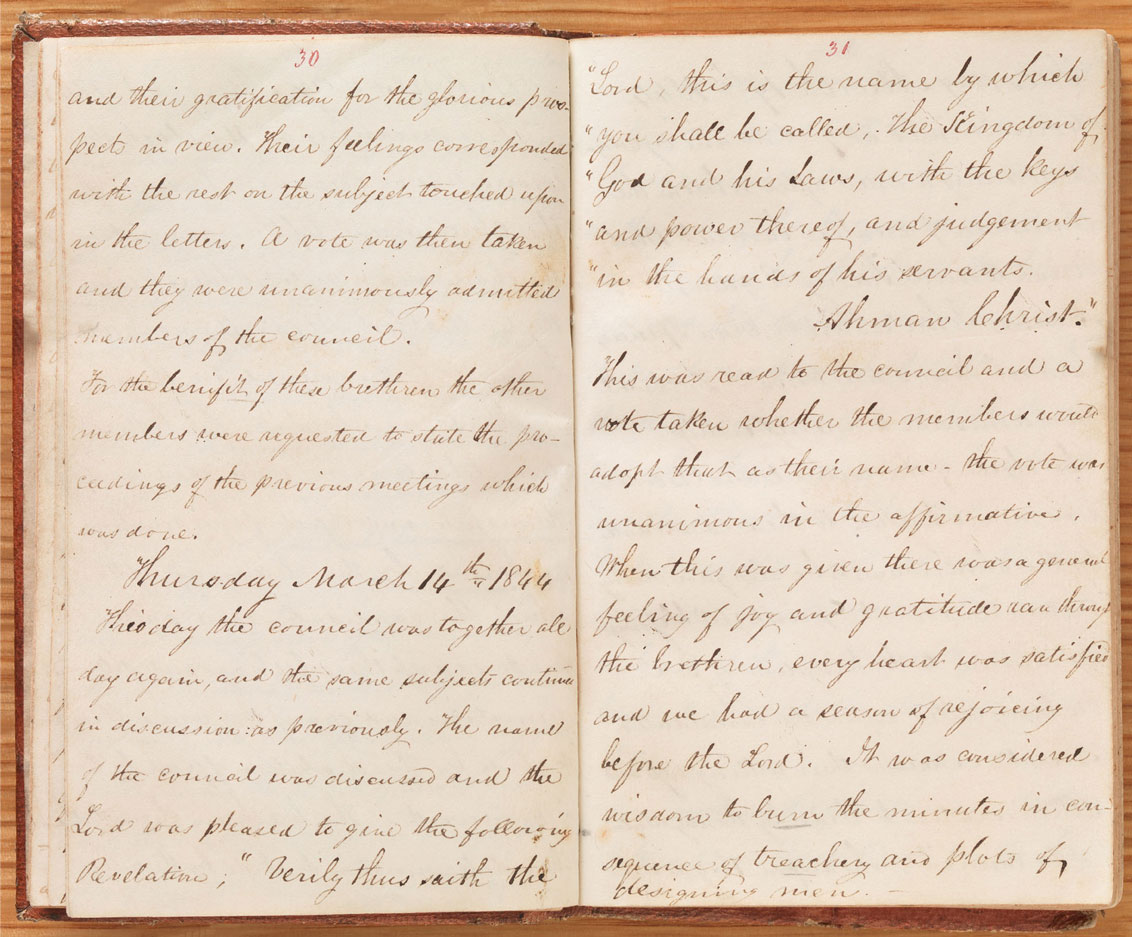 30
and their gratification for the glorious pros-
pect in view. Their feelings corresponded
with the rest on the subject touched upon
in the letters. A vote was then taken
and they were unanimously admitted
members of the council.
For the benifit of these brethren the other
members were requested to state the pro-
ceedings of the previous meetings which
was done.
Thursday March 14th 1844
This day the council was together all
day again, and the same subjects continued
in discussion as previously. The name
of the council was discussed and the
Lord was pleased to give the following
Revelation; "Verily thus saith the
31
"Lord, this is the name by which
"you shall be called, The Kingdom of
"God and his Laws, with the keys
"and power thereof, and judgement
"in the hands of his servants.
Ahman Christ."
This was read to the council and a
vote taken whether the members would
adopt that as their name - the vote was
unanimous in the affirmative.
When this was given there was a general
feeling of joy and gratitude ran through
the brethren, every heart was satisfied
and we had a season of rejoicing
before the Lord. It was considered
wisdom to burn the minutes in con-
sequence of treachery and plots of
designing men. -